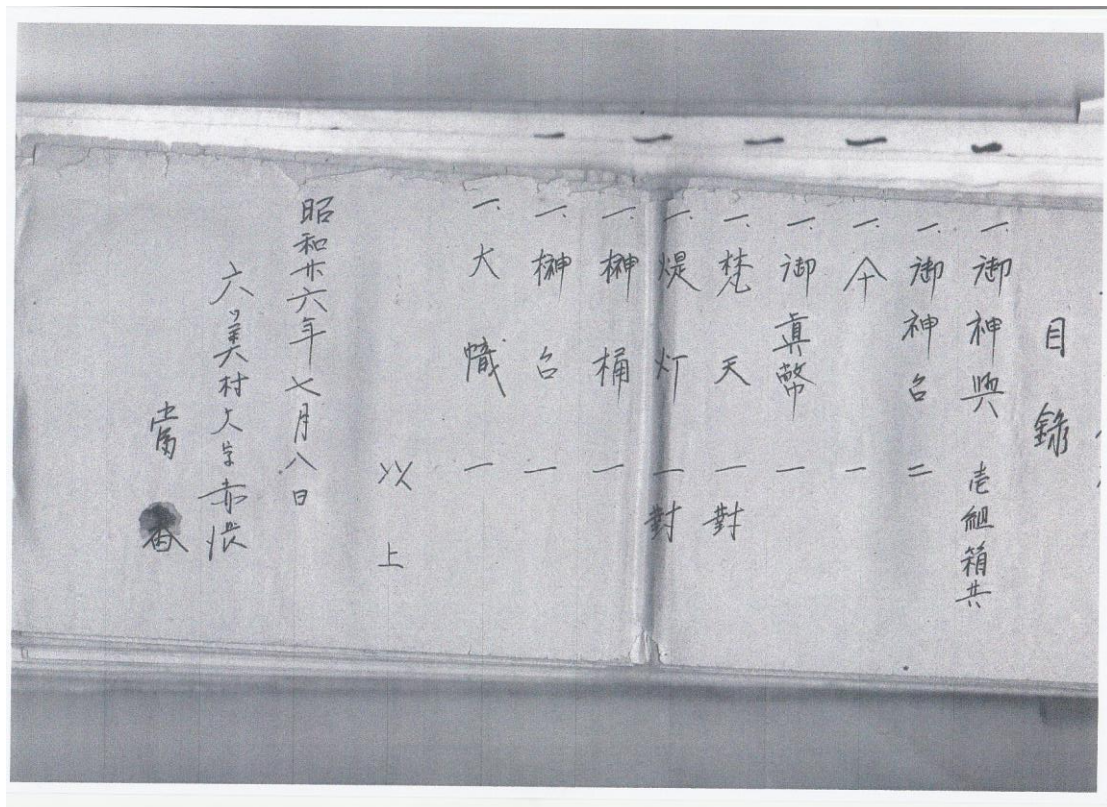 目錄
一、御神輿 壱組箱共
一、御神台 二
一、仐 一
一、御眞幣 一
一、梵天 一對
一、煶灯 一對
一、榊桶 一
一、榊台 一
一、大幟 一
以上
昭和廿六年七月八日
六ツ美村大字赤渋
當番